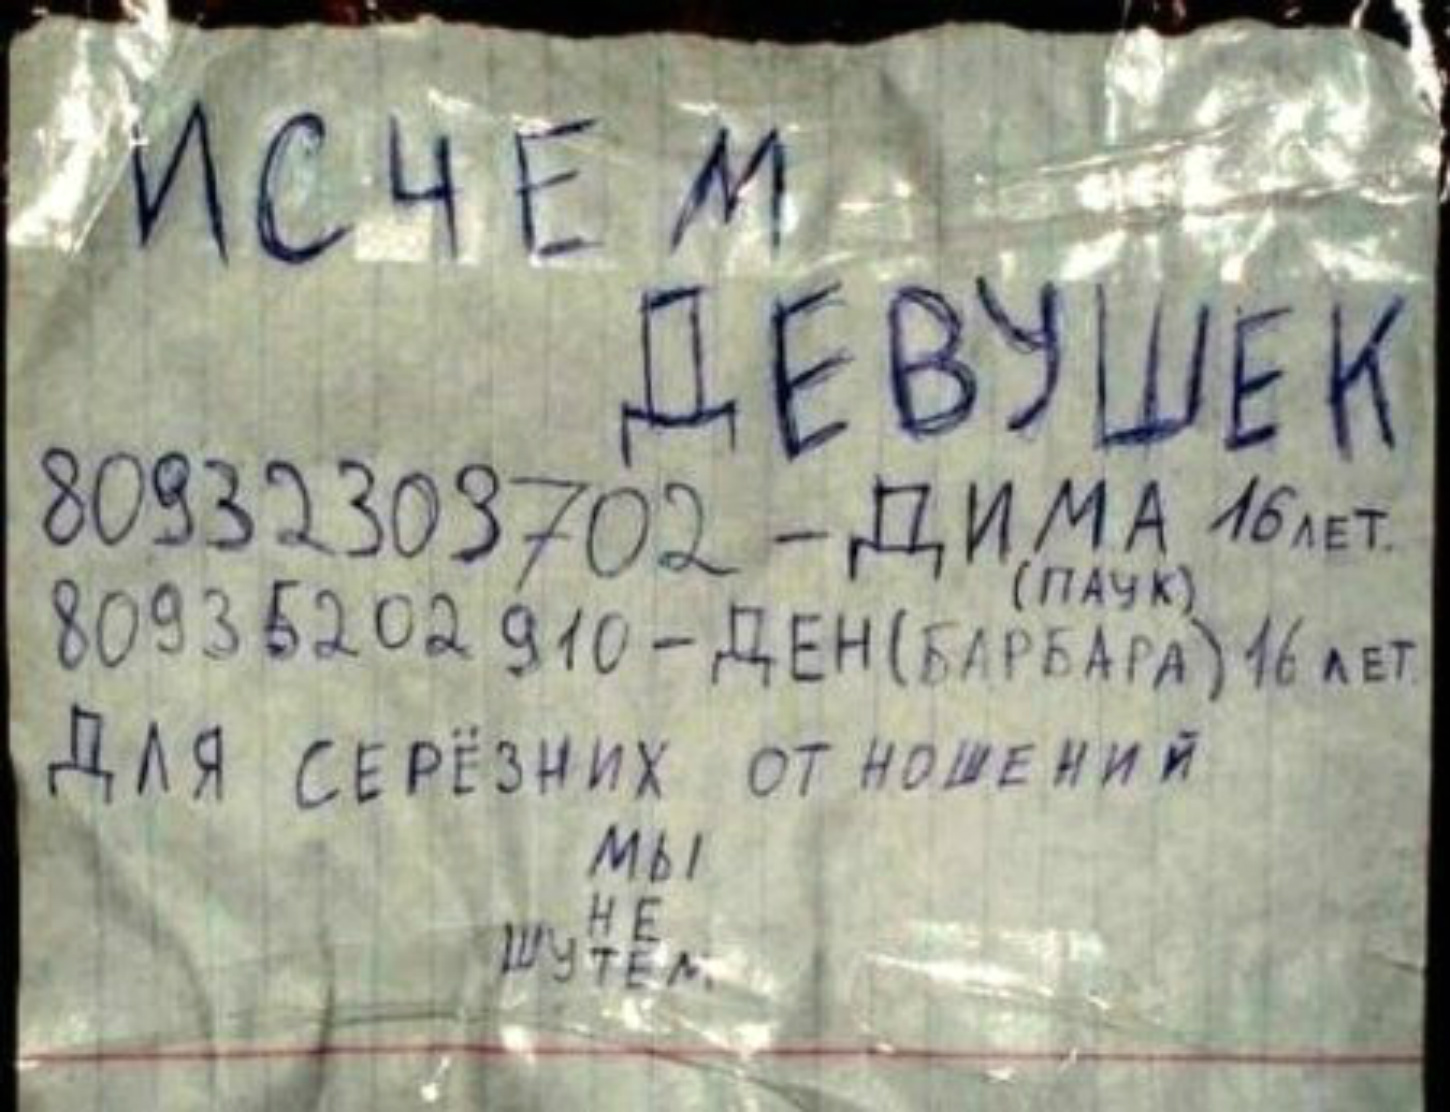 ИСЧЕМ
ДЕВУШЕК
80932309702 - ДИМА 16 ЛЕТ.
(ПАУК)
80935202910 - ДЕН (БАРБАРА) 16 ЛЕТ.
ДЛЯ СЕРЁЗНИХ ОТНОШЕНИЙ
МЫ
НЕ
ШУТЕМ.